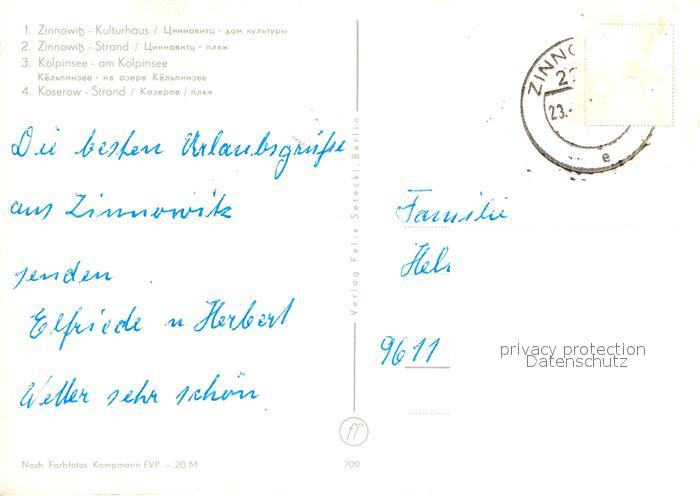 1. Zinnowitz - Kulturhaus / Цинновитц - дом культуры
2. Zinnowitz - Strand / Цинновитц - пляж
3. Kölpinsee - am Kölpinsee
Кёльпинзее - на озере Кёльпинзее
4. Koserow - Strand / Козеров / пляж
Die besten Urlaubsgrüße
aus Zinnowitz
senden
Elfriede u Herbert
Wetter sehr schön
Nach Farbfotos Kampmann EVP –.20 M
Verlag Felix Setecki, Berlin
ff
709
ZINNO
22
23.
e
Familie
Hel
9611
privacy protection
Datenschutz